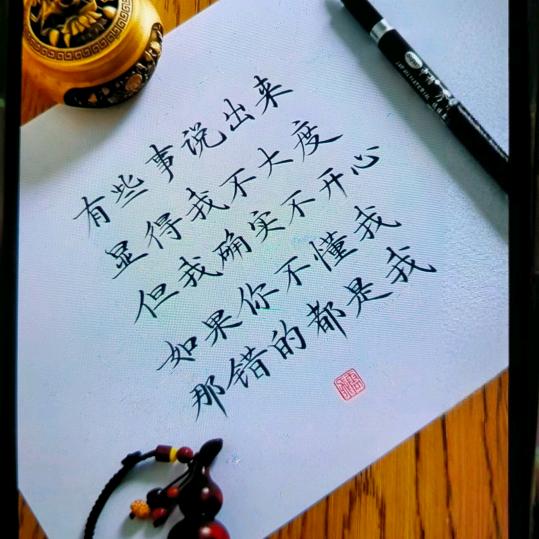 有些事说出来
显得我不大度
但我确实不开心
如果你不懂我
那错的都是我